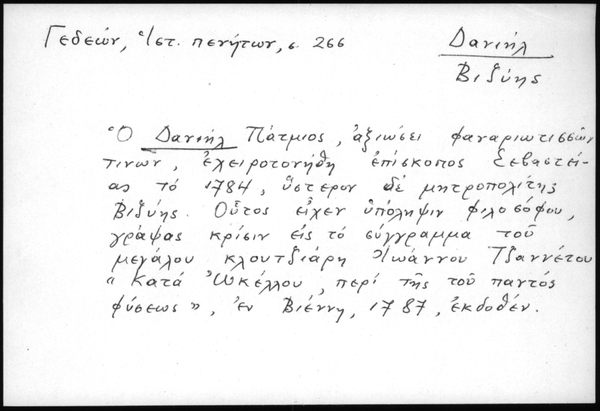 Γεδεών, Ἱστ. πενήτων, σ. 266
Δανιήλ
Βιζύης
Ὁ Δανιήλ Πάτμιος, ἀξιώσει φαναριωτισσῶν
τινων, ἐχειροτονήθη ἐπίσκοπος Σεβαστεί-
ας τό 1784, ὕστερον δέ μητροπολίτης
Βιζύης. Οὗτος εἶχεν ὑπόληψιν φιλοσόφου,
γράψας κρίσιν εἰς τό σύγγραμμα τοῦ
μεγάλου κλουτζιάρη Ἰωάννου Τζαννέτου
"Κατά Ὠκέλλου, περί τῆς τοῦ παντός
φύσεως", ἐν Βιέννῃ, 1787, ἐκδοθέν.